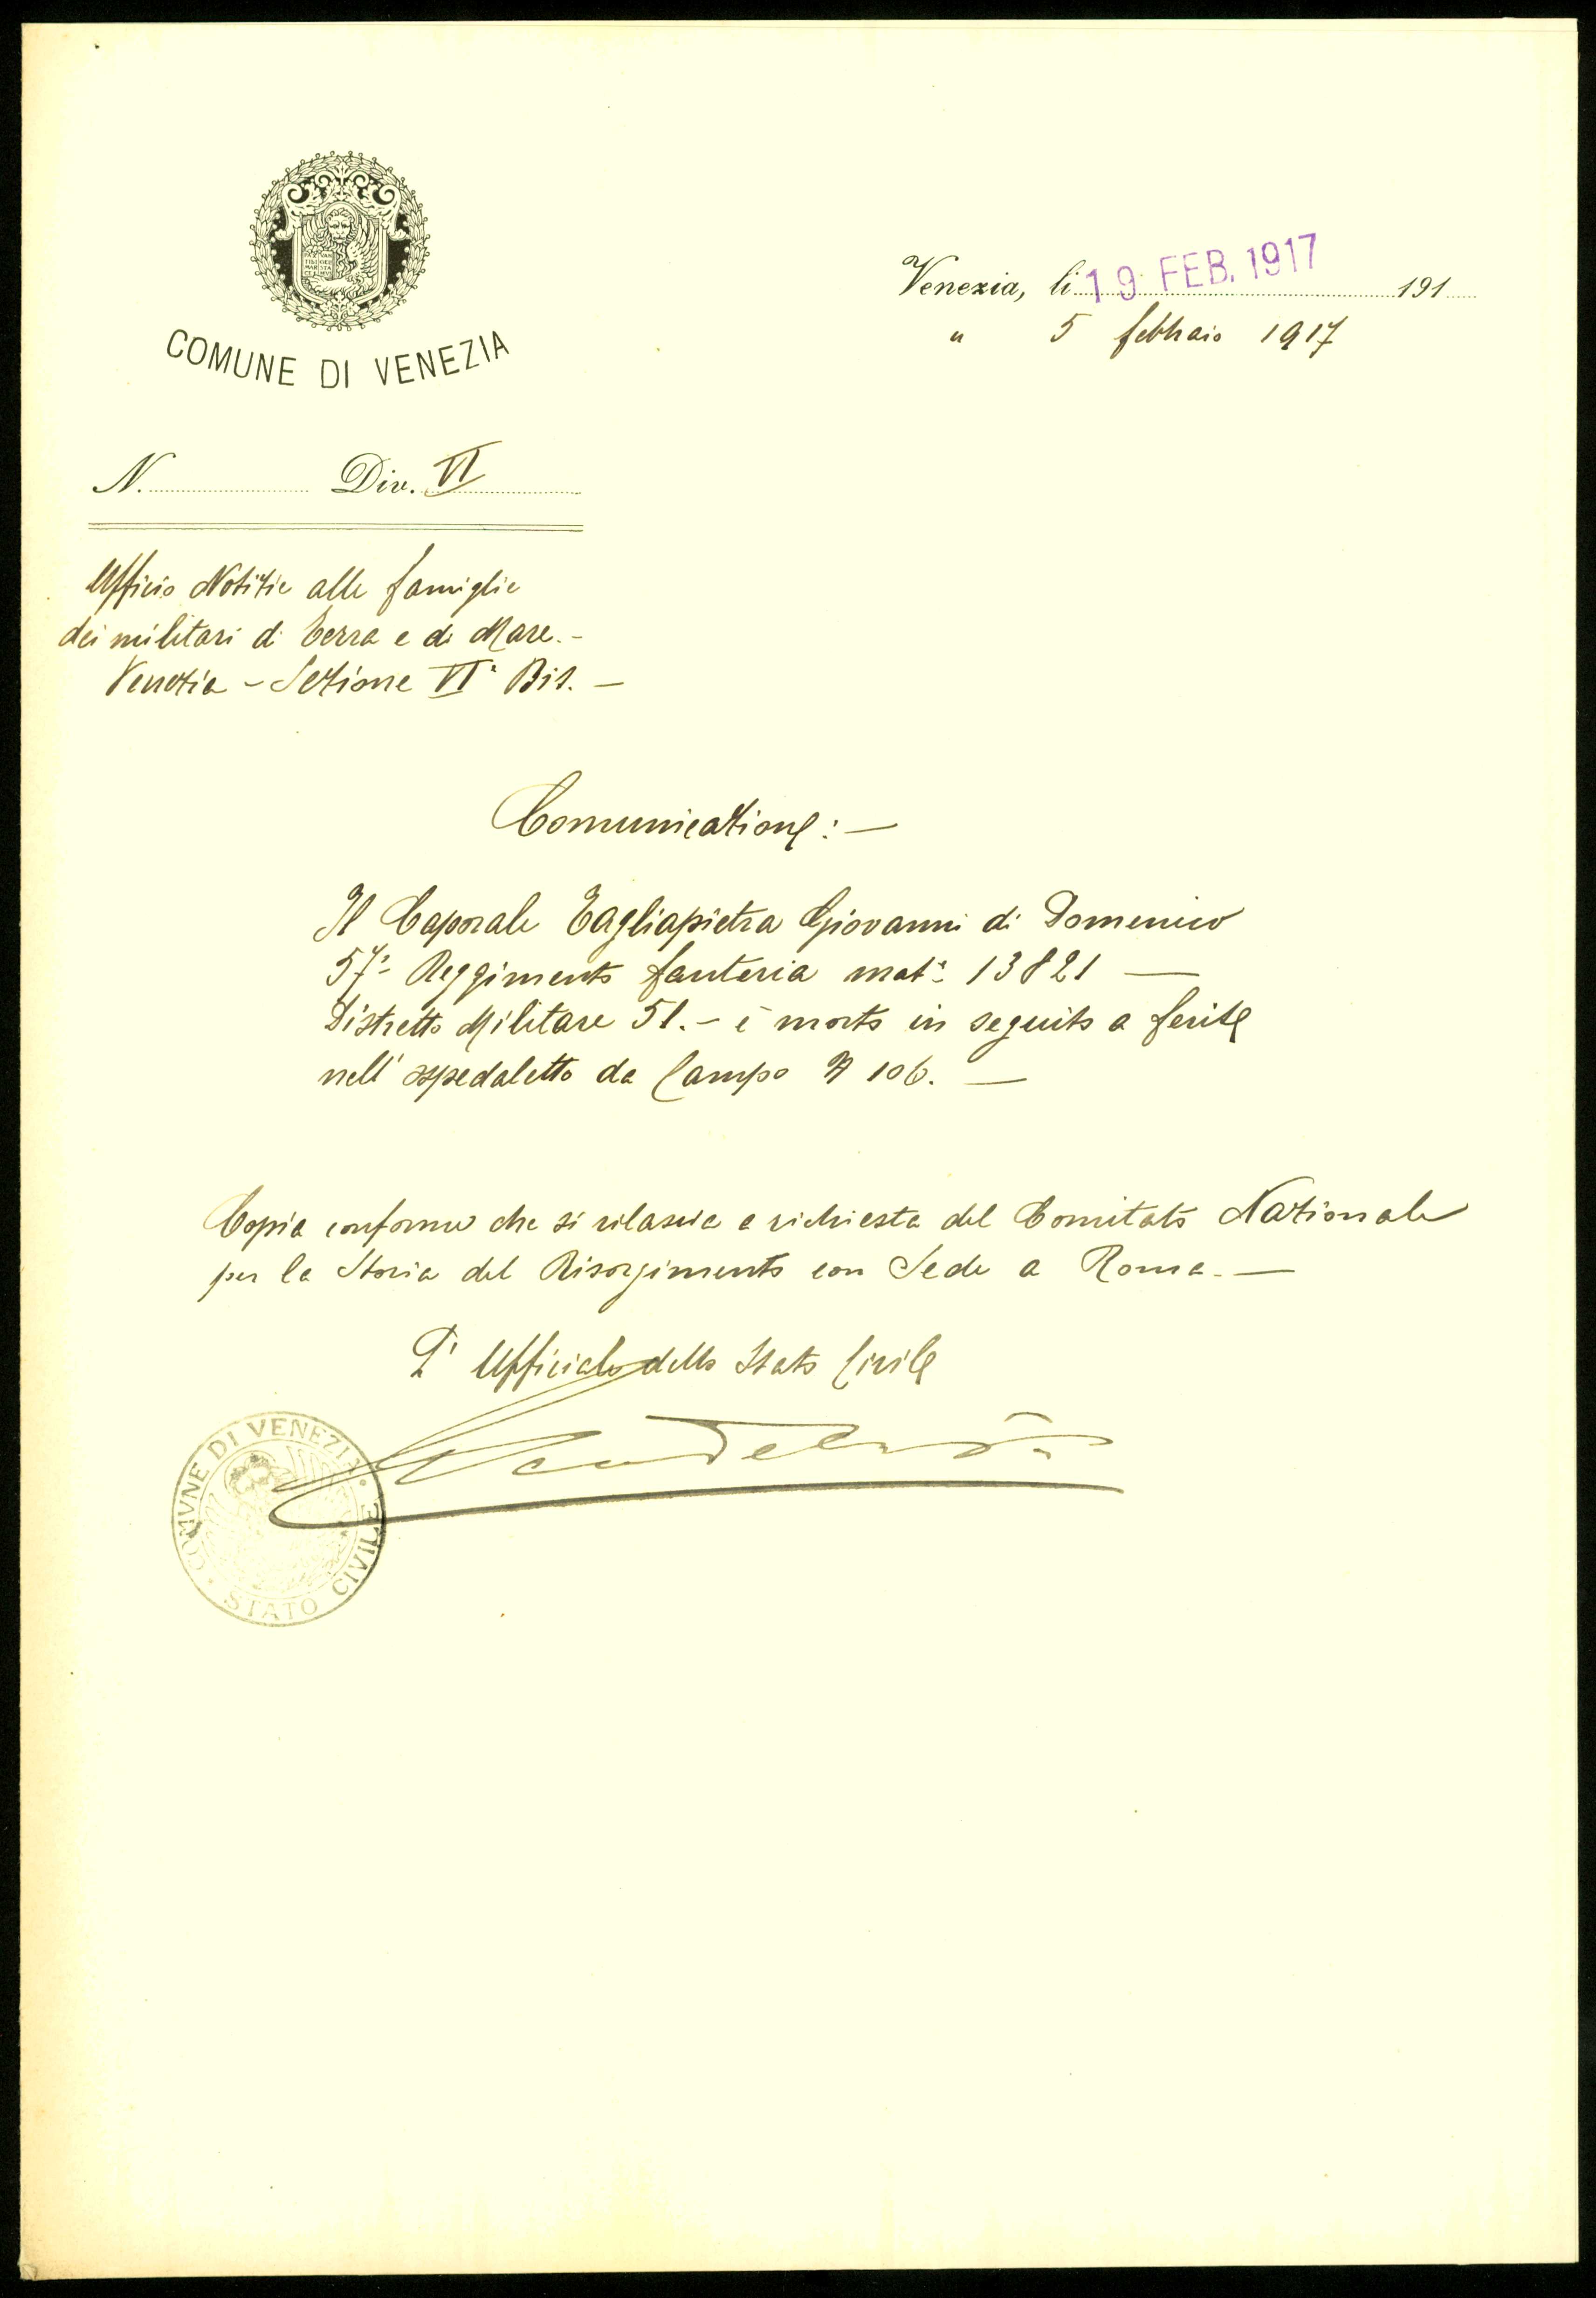 COMUNE DI VENEZIA
Venezia, li 19 FEB. 1917 191
" 5 febbraio 1917
N. Div. VI
Ufficio Notizie alle famiglie
dei militari di terra e di Mare.-
Venezia - Sezione VIª Bis. —
Comunicazione: —
Il Caporale Tagliapietra Giovanni di Domenico
57º Reggimento fanteria matª 13821 —
Distretto Militare 51.- è morto in seguito a ferite
nell' ospedaletto da Campo Nº 106. —
Copia conforme che si rilascia a richiesta del Comitato Nazionale
per la Storia del Risorgimento con Sede a Roma. —
L' Ufficiale dello Stato Civile
COMVNE DI VENEZIA · STATO CIVILE ·